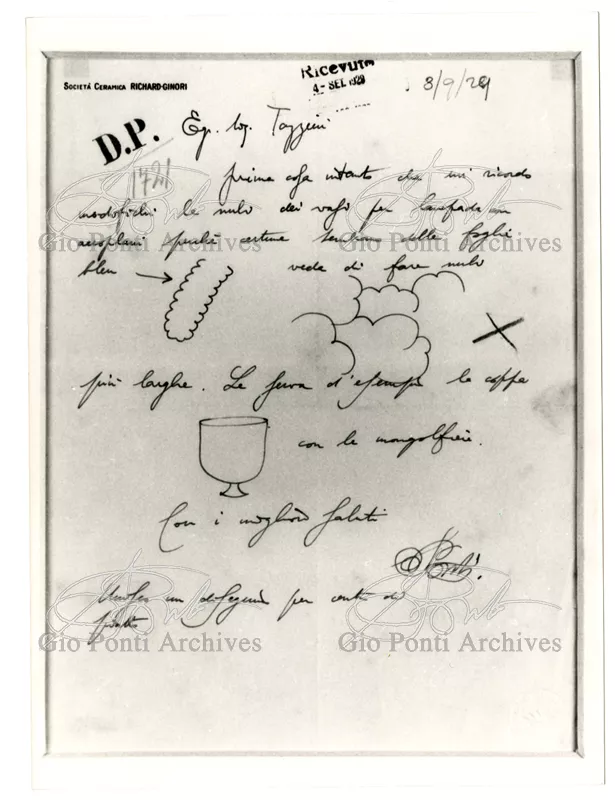 SOCIETÁ CERAMICA RICHARD-GINORI
Ricevuto
4 - SEL 1929
3/9/29
D.P.
Eg. Sig. Tazzini
1721
prima cosa intanto che mi ricordo
modifichi le nubi dei vasi per
aeroplani perché
bleu
veda di fare nubi
più larghe. Le serva d'esempio le coppe
con le mongolfiere.
Con i migliori saluti
Ponti.
un per conto di
piatto
Gio Ponti Archives
Gio Ponti Archives
Gio Ponti Archives
Gio Ponti Archives